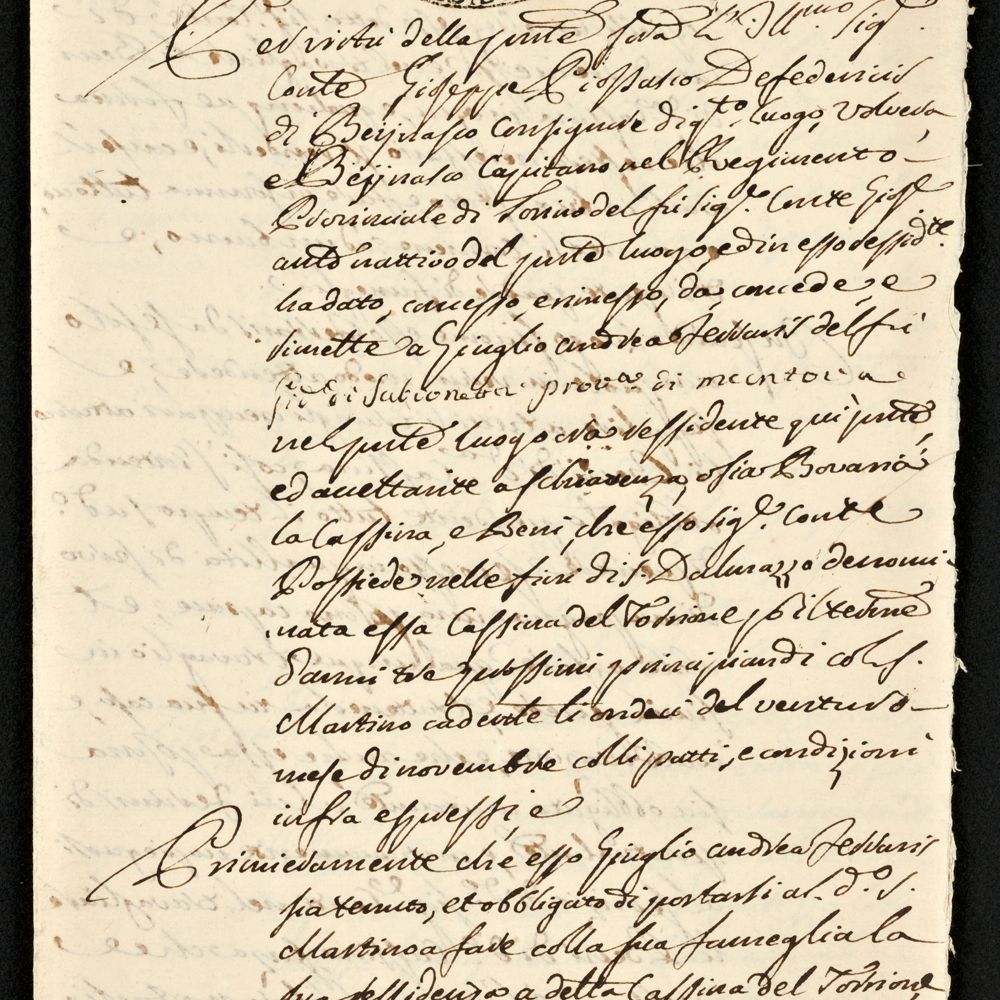 Per virtù della pnte scrad L'Ill.mo Sig.
Conte Giuseppe Piossasco Defedericis
di Beijnasco, Consignore di q.to luogo, Volvera,
e Beijnasco Capitano nel Regimento
Provinciale di Torino del fù Sig.r Conte Gios.
anto nattivo del pnte luogo, ed in esso ressid.te
ha dato, concesso, e rimesso, da, concede, e
rimette a Giuglio andrea Ferraris del fù
di Sabioneta prov.a di mantova
nel pnte luogo ora ressidente qui pnte
ed accettante a schiavenza, osia Bovaria
la Cassina, e Beni, che esso Sig.r Conte
Possiede nelle fini di S. Dalmazzo denomi-
nata essa Cassina del Torrione p il termne
d'anni tre prossimi principiandi col S.
Martino cadente li ondeci del venturo
mese di novembre colli patti, e condizioni
infra espressi, e
Primieramente che esso Giuglio andrea Ferraris
sia tenuto, et obbligato di portarsi al d.o S.
Martino a fare colla sua fameglia la
sua ressidenza a della Cassina del Torrione